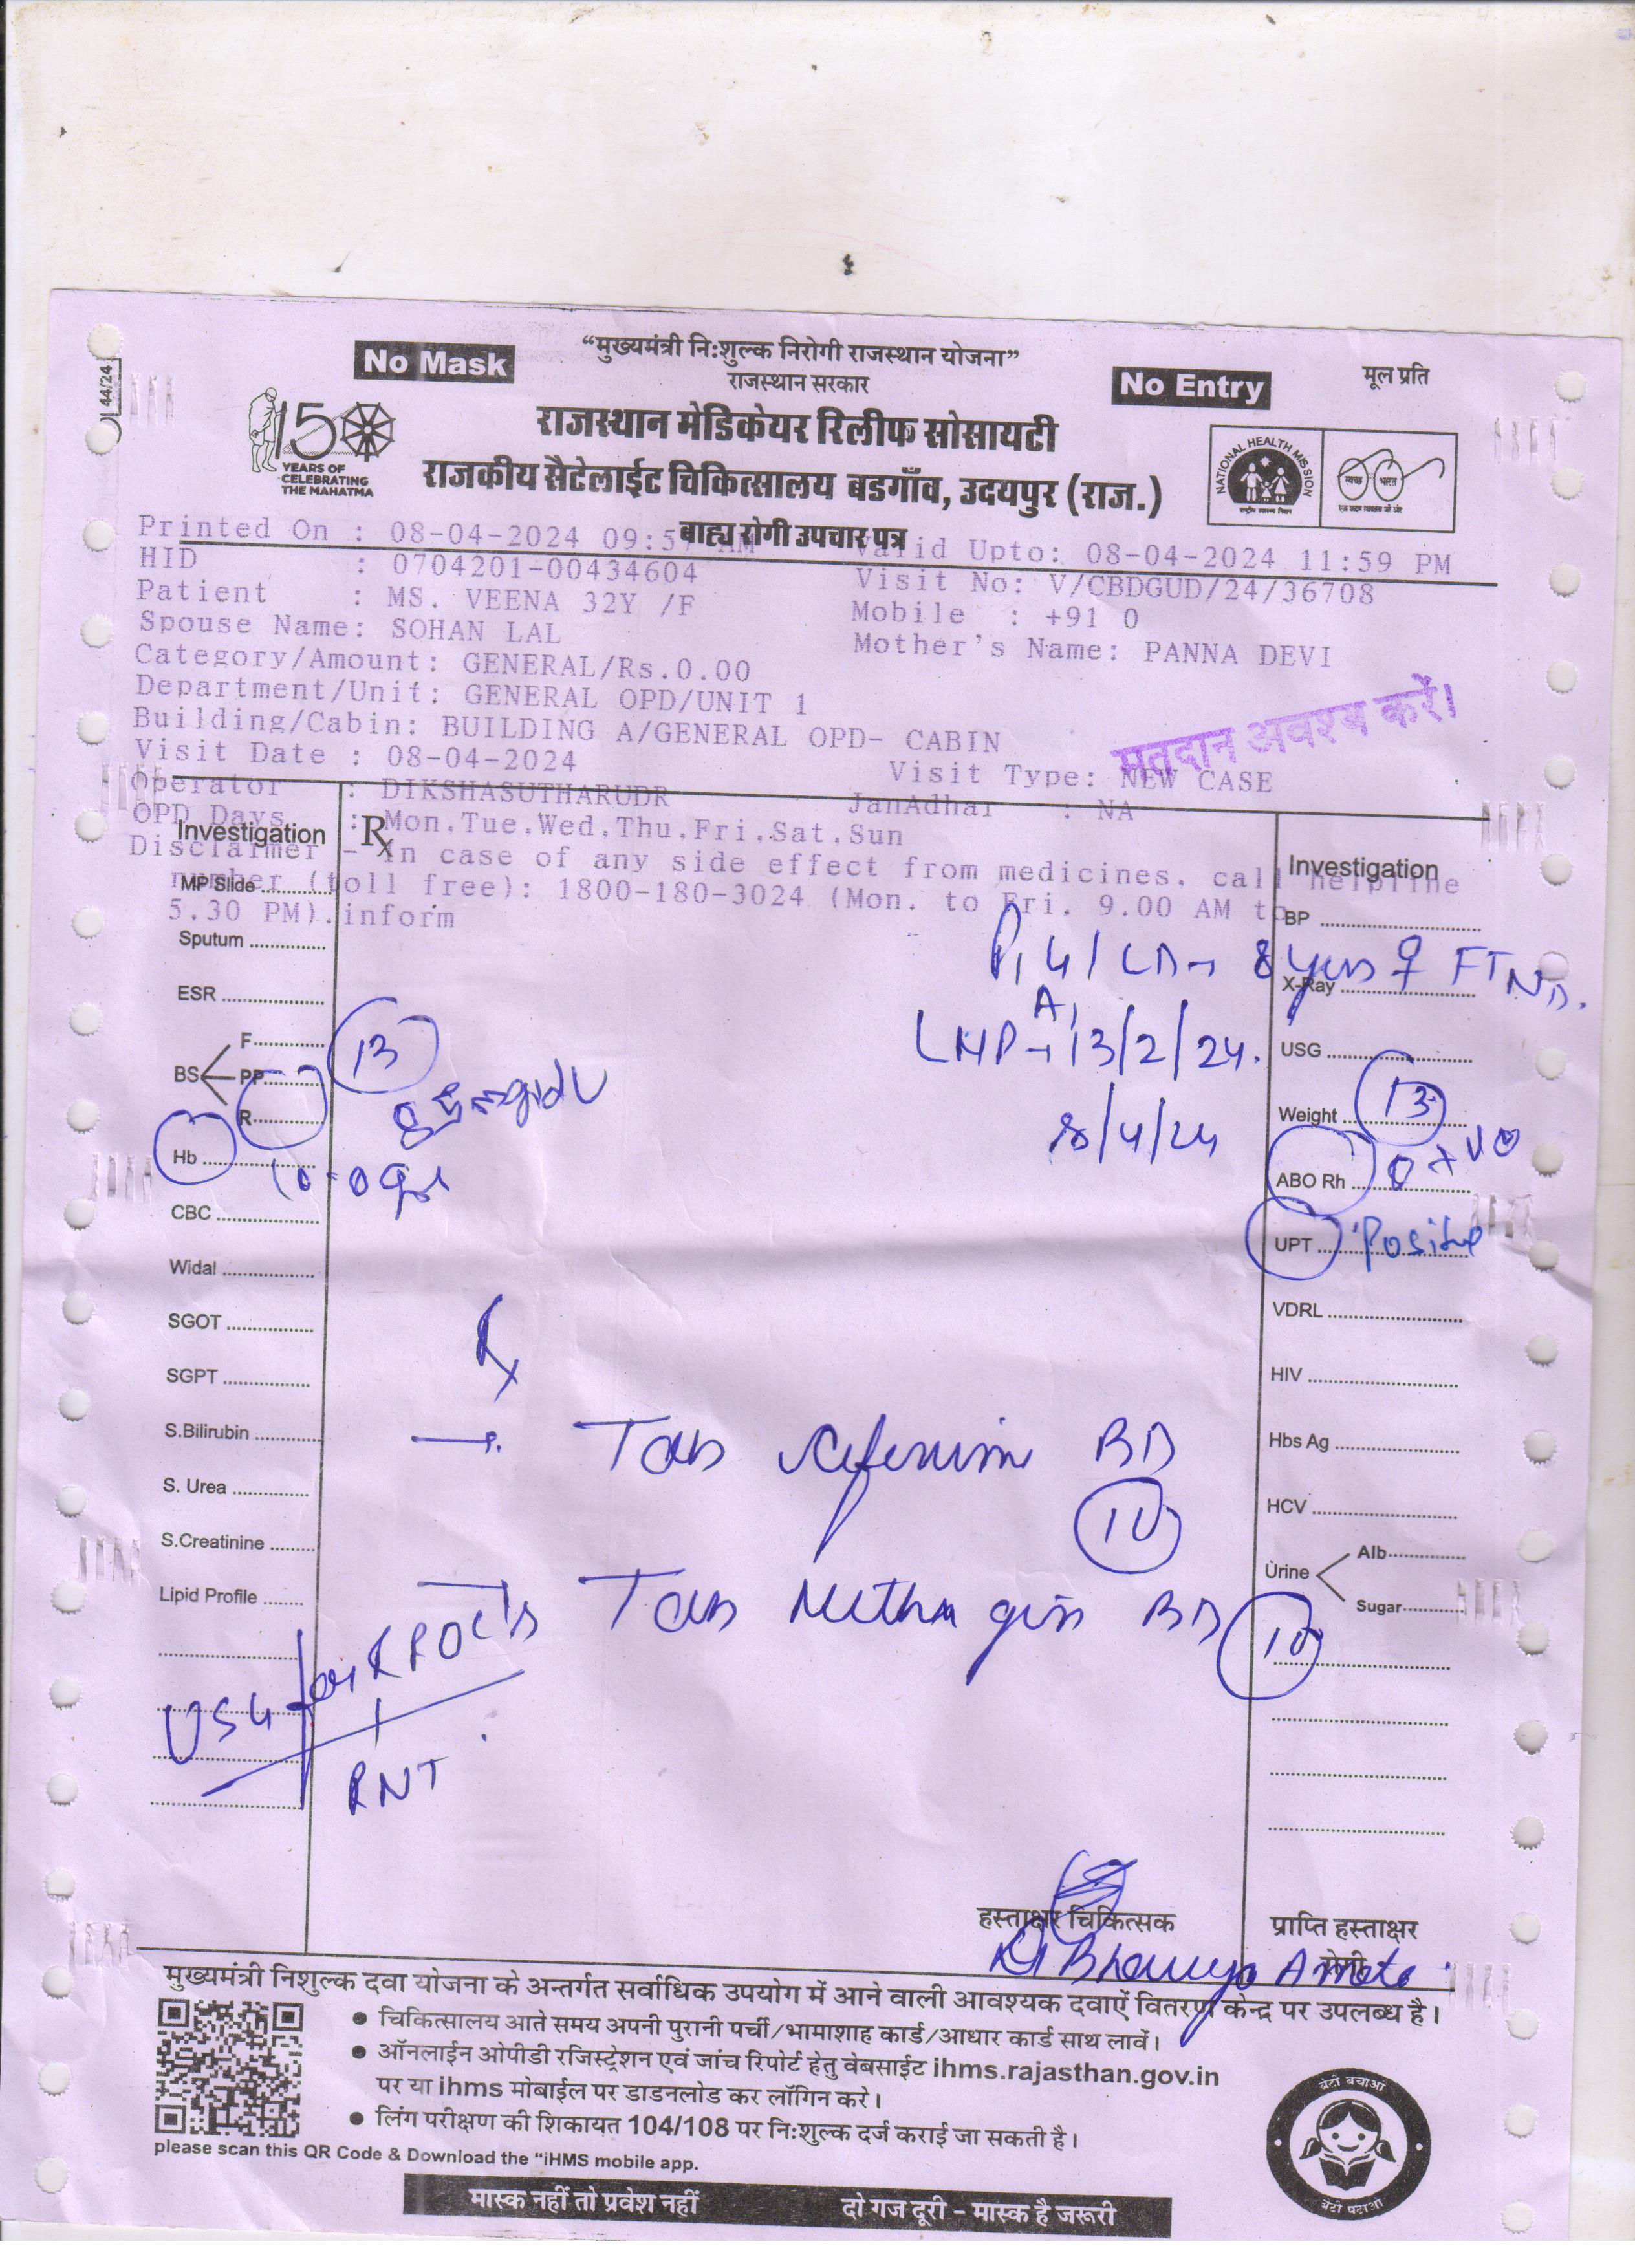 44/24
No Mask
“मुख्यमंत्री निःशुल्क निरोगी राजस्थान योजना”
राजस्थान सरकार
No Entry
मूल प्रति
150
YEARS OF
CELEBRATING
THE MAHATMA
राजस्थान मेडिकेयर रिलीफ सोसायटी
राजकीय सैटेलाईट चिकित्सालय बडगाँव, उदयपुर (राज.)
NATIONAL HEALTH MISSION
स्वच्छ भारत
बाह्य रोगी उपचार पत्र
Printed On : 08-04-2024 09:5 AM Valid Upto: 08-04-2024 11:59 PM
HID : 0704201-00434604 Visit No: V/CBDGUD/24/36708
Patient : MS. VEENA 32Y /F Mobile : +91 0
Spouse Name: SOHAN LAL Mother's Name: PANNA DEVI
Category/Amount: GENERAL/Rs.0.00
Department/Unit: GENERAL OPD/UNIT 1
Building/Cabin: BUILDING A/GENERAL OPD- CABIN
मतदान अवश्य करें।
Visit Date : 08-04-2024 Visit Type: NEW CASE
Operator : DIKSHASUTHARUDR JanAdhar : NA
OPD Days : Mon.Tue.Wed.Thu.Fri.Sat.Sun
Disclaimer - In case of any side effect from medicines. call helpline
number (toll free): 1800-180-3024 (Mon. to Fri. 9.00 AM to
5.30 PM).inform
Investigation
Rx
MP Slide
Sputum
ESR
BS F
PP
R
13
Hb 10.0
CBC
Widal
SGOT
SGPT
S.Bilirubin
S. Urea
S.Creatinine
Lipid Profile
FTND.
LMP → 13/2/24.
8/4/24
Rx
→ Tab BD
10
Tab BD 10
USG for RPOC's
RNT
Investigation
BP
X-Ray
USG
Weight 13
ABO Rh O +ve
UPT Positive
VDRL
HIV
Hbs Ag
HCV
Urine Alb
Sugar
हस्ताक्षर चिकित्सक
प्राप्ति हस्ताक्षर
रोगी
मुख्यमंत्री निशुल्क दवा योजना के अन्तर्गत सर्वाधिक उपयोग में आने वाली आवश्यक दवाऐं वितरण केन्द्र पर उपलब्ध है।
● चिकित्सालय आते समय अपनी पुरानी पर्ची/भामाशाह कार्ड/आधार कार्ड साथ लावें।
● ऑनलाईन ओपीडी रजिस्ट्रेशन एवं जांच रिपोर्ट हेतु वेबसाईट ihms.rajasthan.gov.in
पर या ihms मोबाईल पर डाडनलोड कर लॉगिन करे।
● लिंग परीक्षण की शिकायत 104/108 पर निःशुल्क दर्ज कराई जा सकती है।
please scan this QR Code & Download the “iHMS mobile app.
बेटी बचाओ
बेटी पढाओ
मास्क नहीं तो प्रवेश नहीं
दो गज दूरी - मास्क है जरूरी